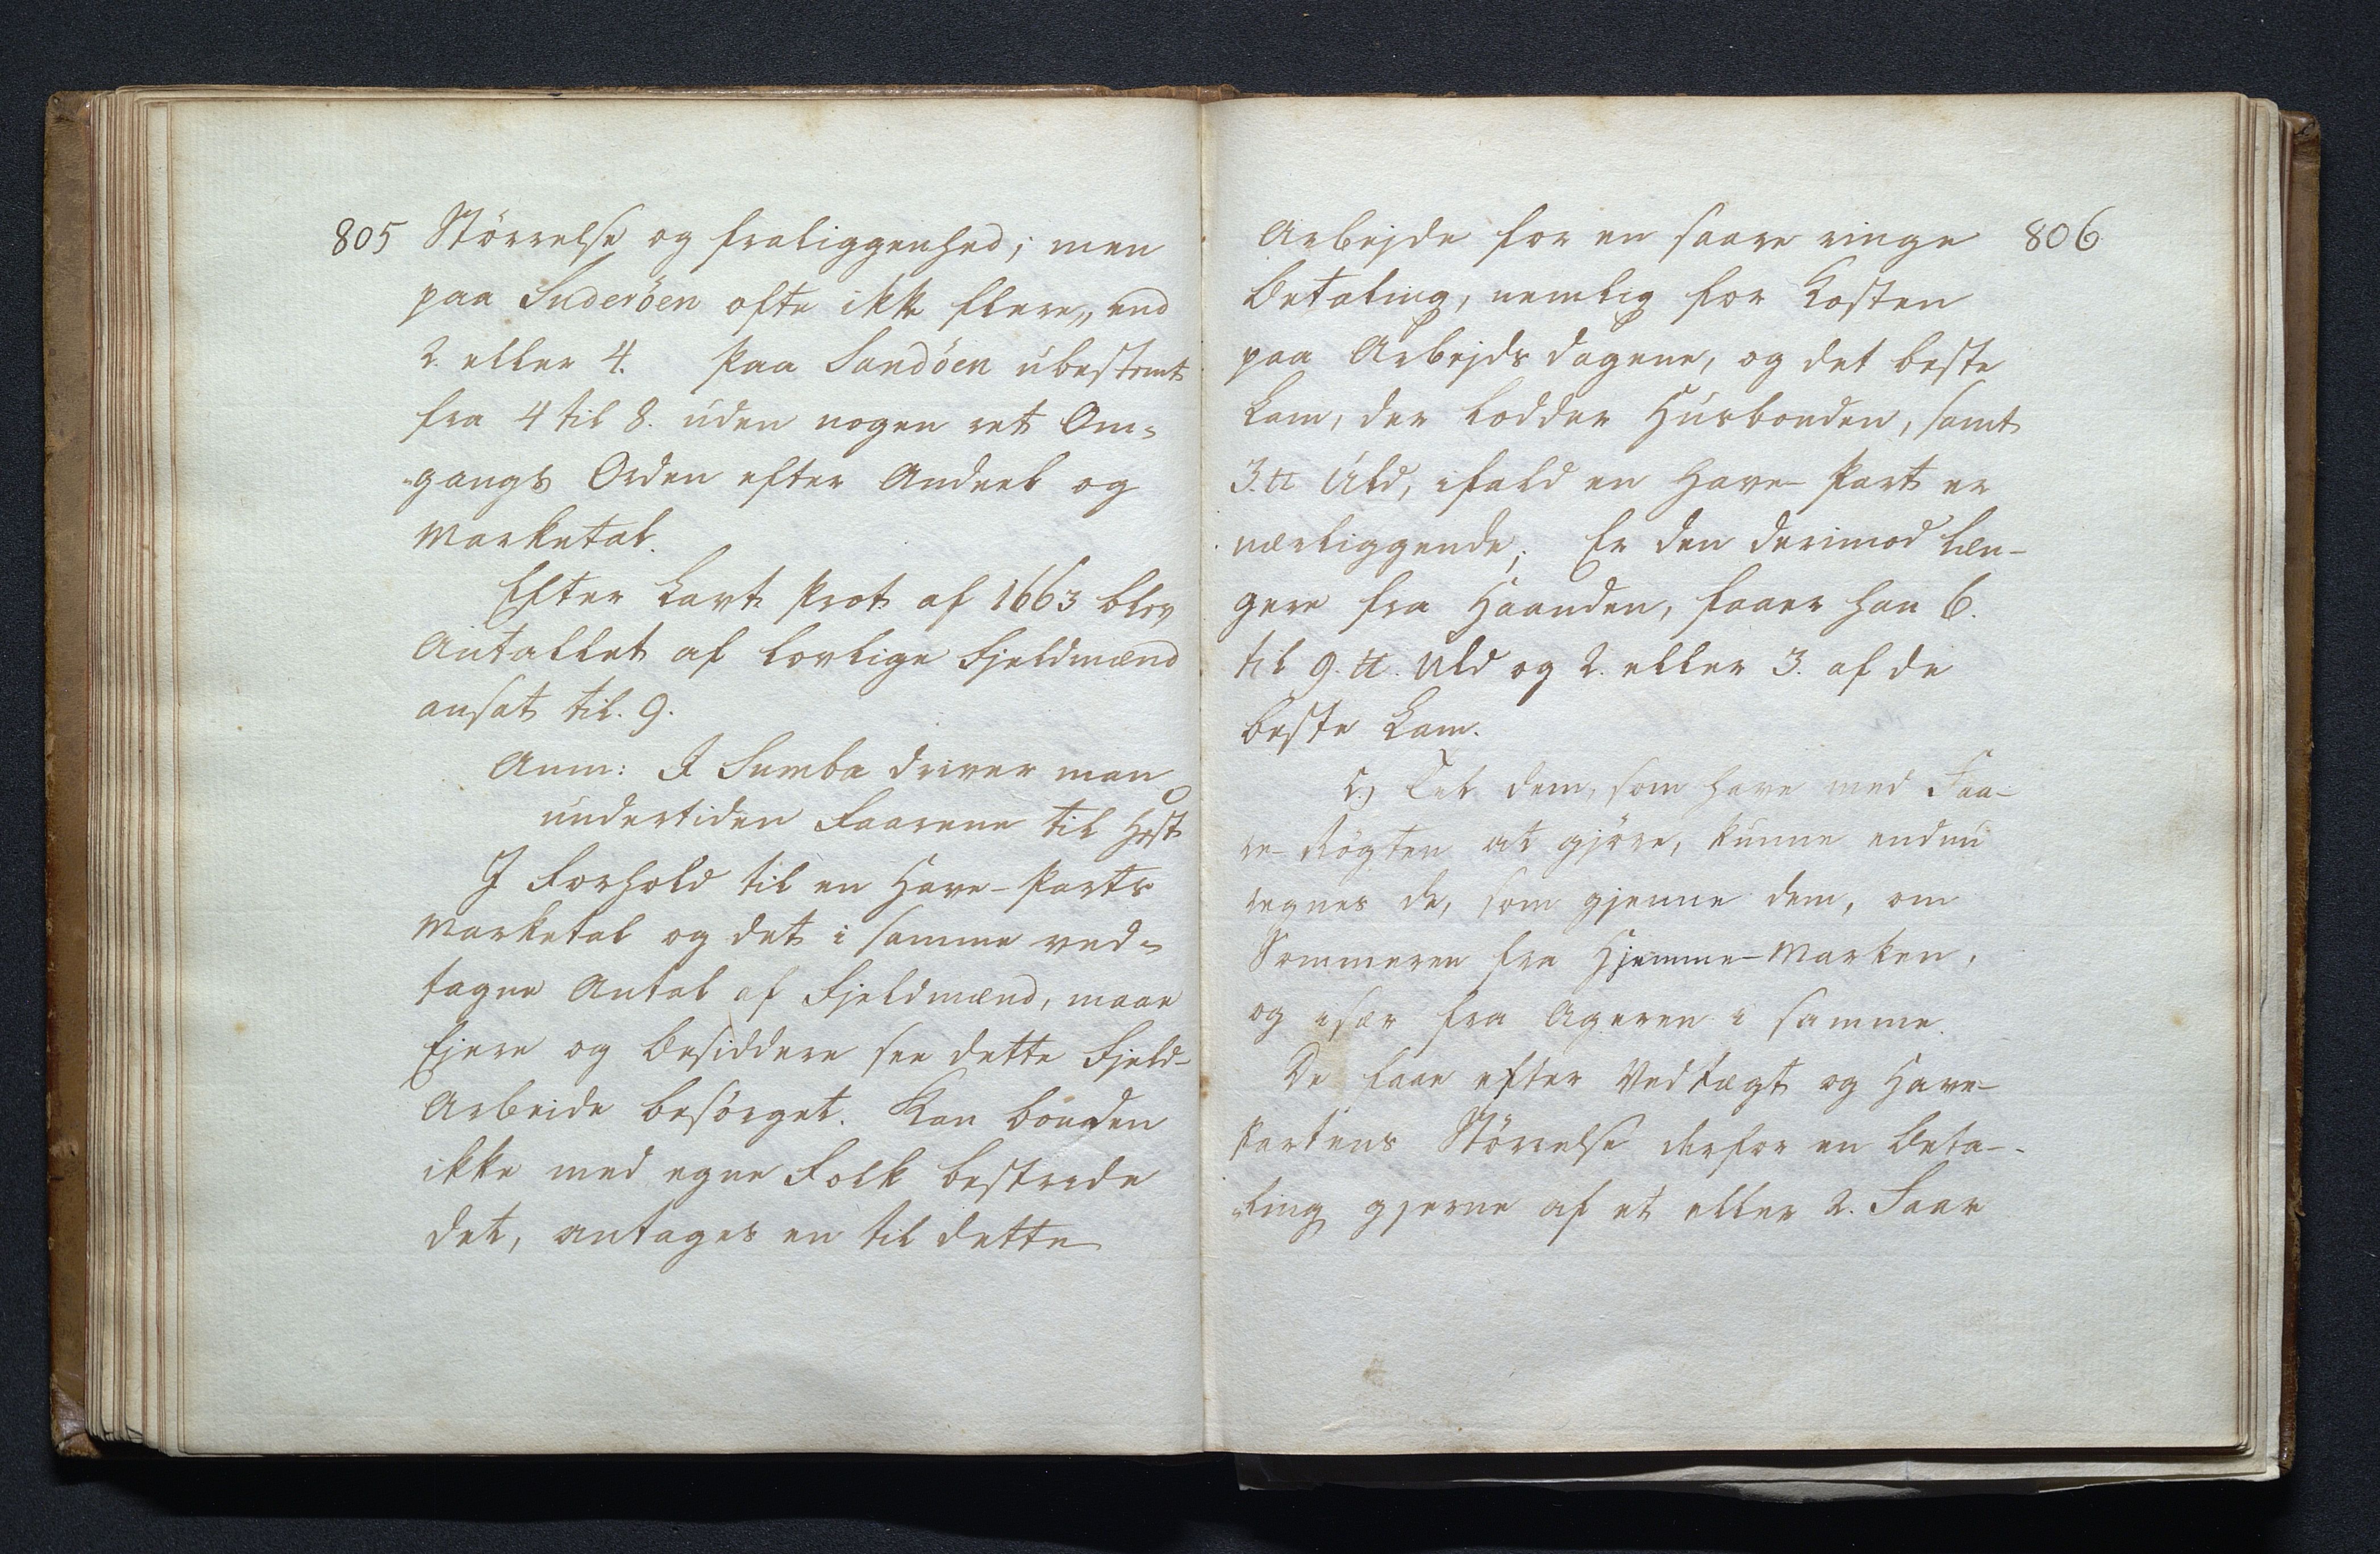 805 Störrelse og fraliggenhed; men
paa Suderöen ofte ikke flere, end
2. eller 4. Paa Sandöen ubestemt
fra 4 til 8. uden nogen ret Om=
gangs Orden efter Andeel og
Marketal.
Efter Lavt. Prot. af 1663 blev
Antallet af lovlige Fjeldmænd
ansat til 9.
Anm: I Sumba driver man
undertiden Faarene til Hest
I Forhold til en Have-Parts
Marketal og det i samme ved=
tagne Antal af Fjeldmænd, maae
Ejere og Besiddere see dette Fjeld-
Arbeide besörget. Kan bonden
ikke med egne Folk bestride
det, antages en til dette
806
Arbejde for en saare ringe
Betaling, nemlig for Kosten
paa Arbejds dagene, og det beste
Lam, der lodder Husbonden, samt
3. ℔ Uld, ifald en Have-Part er
nærliggende; Er den derimod læn-
gere fra Haanden, faaer han 6.
til 9. ℔. Uld og 2. eller 3. af de
beste Lam.
C.) Til dem, som have med Faa-
re-Rögten at gjöre, kunne endnu
regnes de, som gjenne dem, om
Sommeren fra Hjemme-Marken,
og især fra Ageren i samme.
De faae efter Vedtægt og Have-
Partens Störrelse derfor en Beta-
ling gjerne af et eller 2. Faar